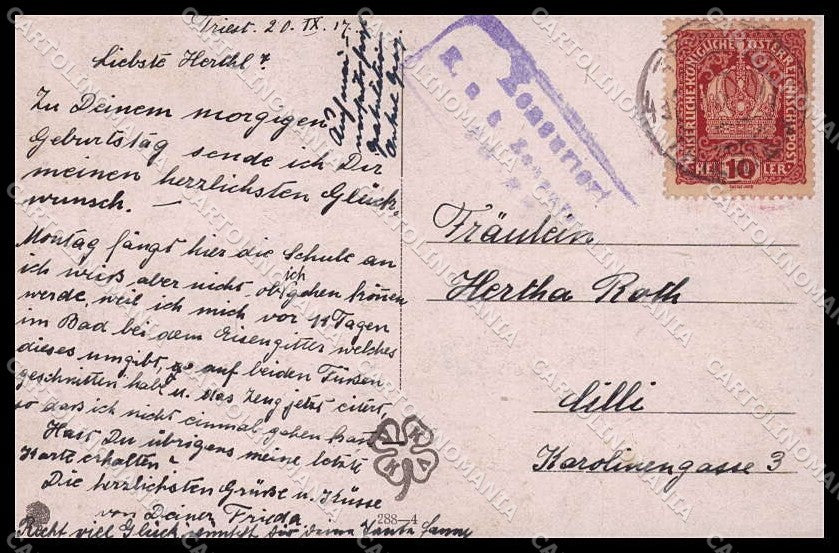 Triest. 20. IX. 17.
Liebste Herthl!
Zu Deinem morgigen
Geburtstag sende ich Dir
meinen herzlichsten Glück-
wunsch. —
Montag fängt hier die Schule an
ich weiß aber nicht, ob ich gehen können
werde, weil ich mich vor 14 Tagen
im Bad bei dem Eisengitter welches
dieses umgibt, so auf beiden Füßen
geschnitten hab u. das Zeug jetzt eitert,
so daß ich nicht einmal gehen kann.
Hast Du übrigens meine letzte
Karte erhalten?
Die herzlichsten Grüße u. Küsse
von Deiner Frieda
Recht viel Glück wünscht Dir Deine Tante Fanny
Zensuriert
K. u. k.
KAISERLICHE KÖNIGLICHE ÖSTERREICHISCHE POST
HELLER 10
Fräulein
Hertha Roth
Cilli
Karolinengasse 3
288—4
CARTOLINOMANIA